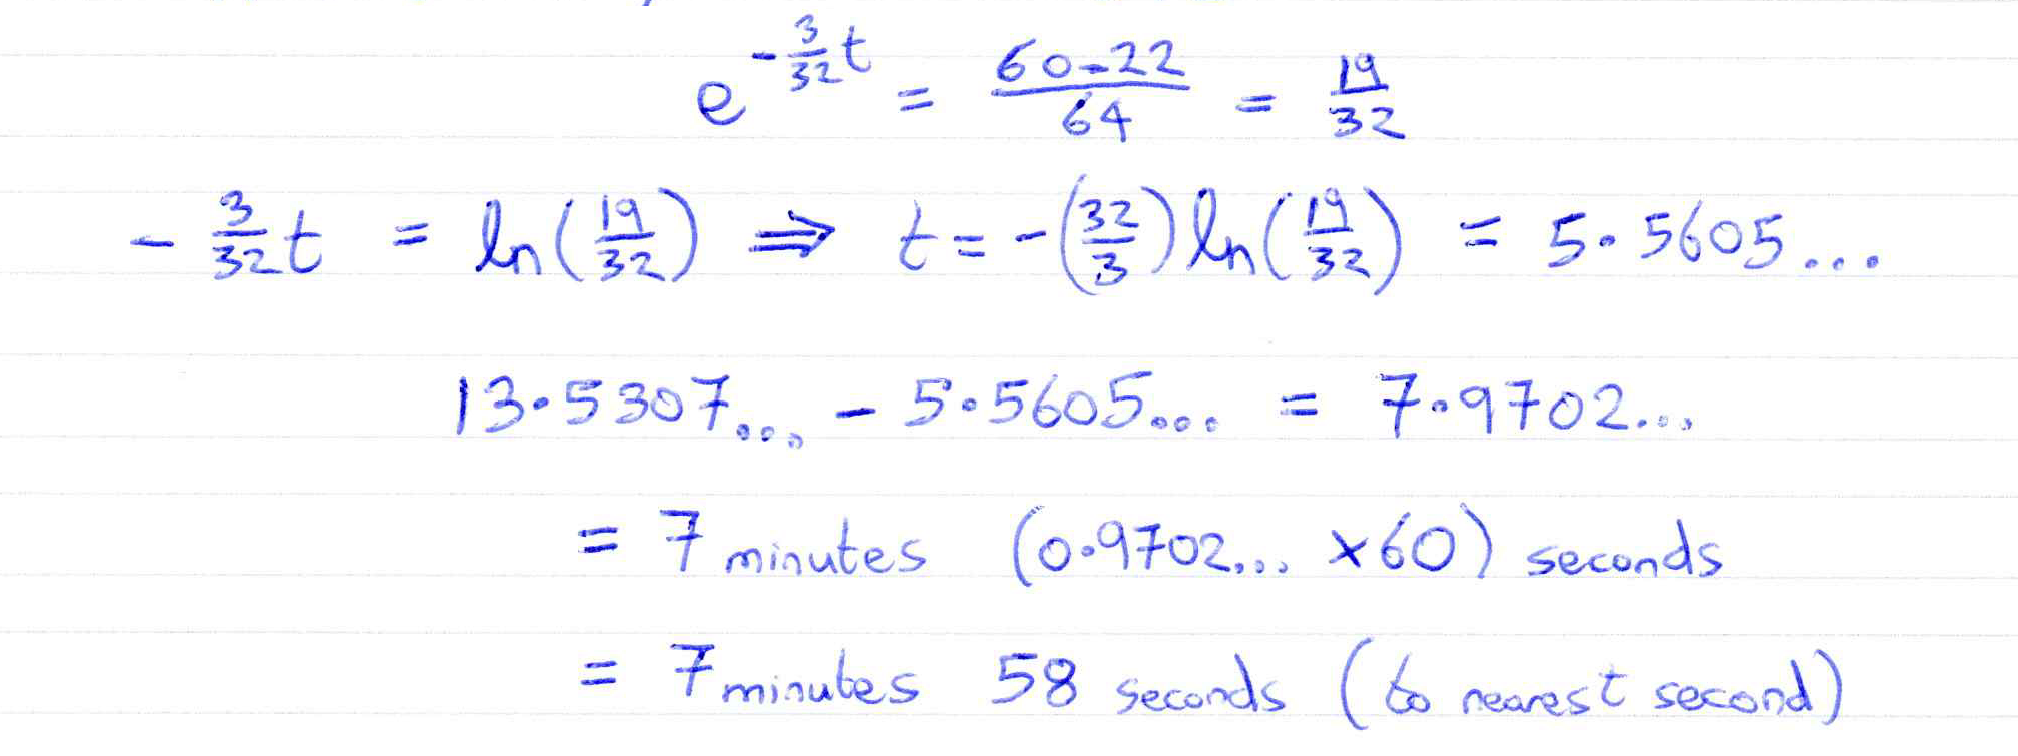 e^{-\frac{3}{32}t} = \frac{60-22}{64} = \frac{19}{32}
-\frac{3}{32}t = ln(\frac{19}{32}) ⇒ t = -(\frac{32}{3}) ln(\frac{19}{32}) = 5.5605...
13.5307... - 5.5605... = 7.9702...
= 7 minutes (0.9702... ×60) seconds
= 7 minutes 58 seconds (to nearest second)